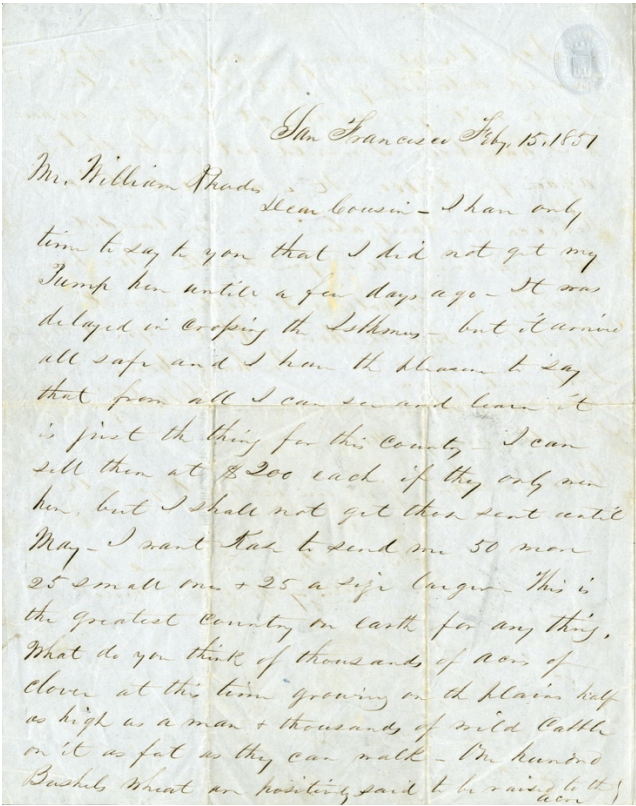 San Francisco Feby. 15. 1851
Mr. William Rhodes
Dear Cousin - I have only
time to say to you that I did not get my
Pump here untill a few days ago - It was
delayed in crossing the Isthmus - but it arrive
all safe and I have the pleasure to say
that from all I can see and learn it
is just the thing for this country - I can
sell them at $200 each if they only were
here, but I shall not get those sent until
May - I want to send me 50 more
25 small ones + 25 a size larger - This is
the greatest country on earth for any thing.
What do you think of thousands of acres of
clover at this time growing on the plains half
as high as a man + thousands of wild Cattle
on it as fat as they can walk - One hundred
Bushels wheat are positively said to be raised to the
acre